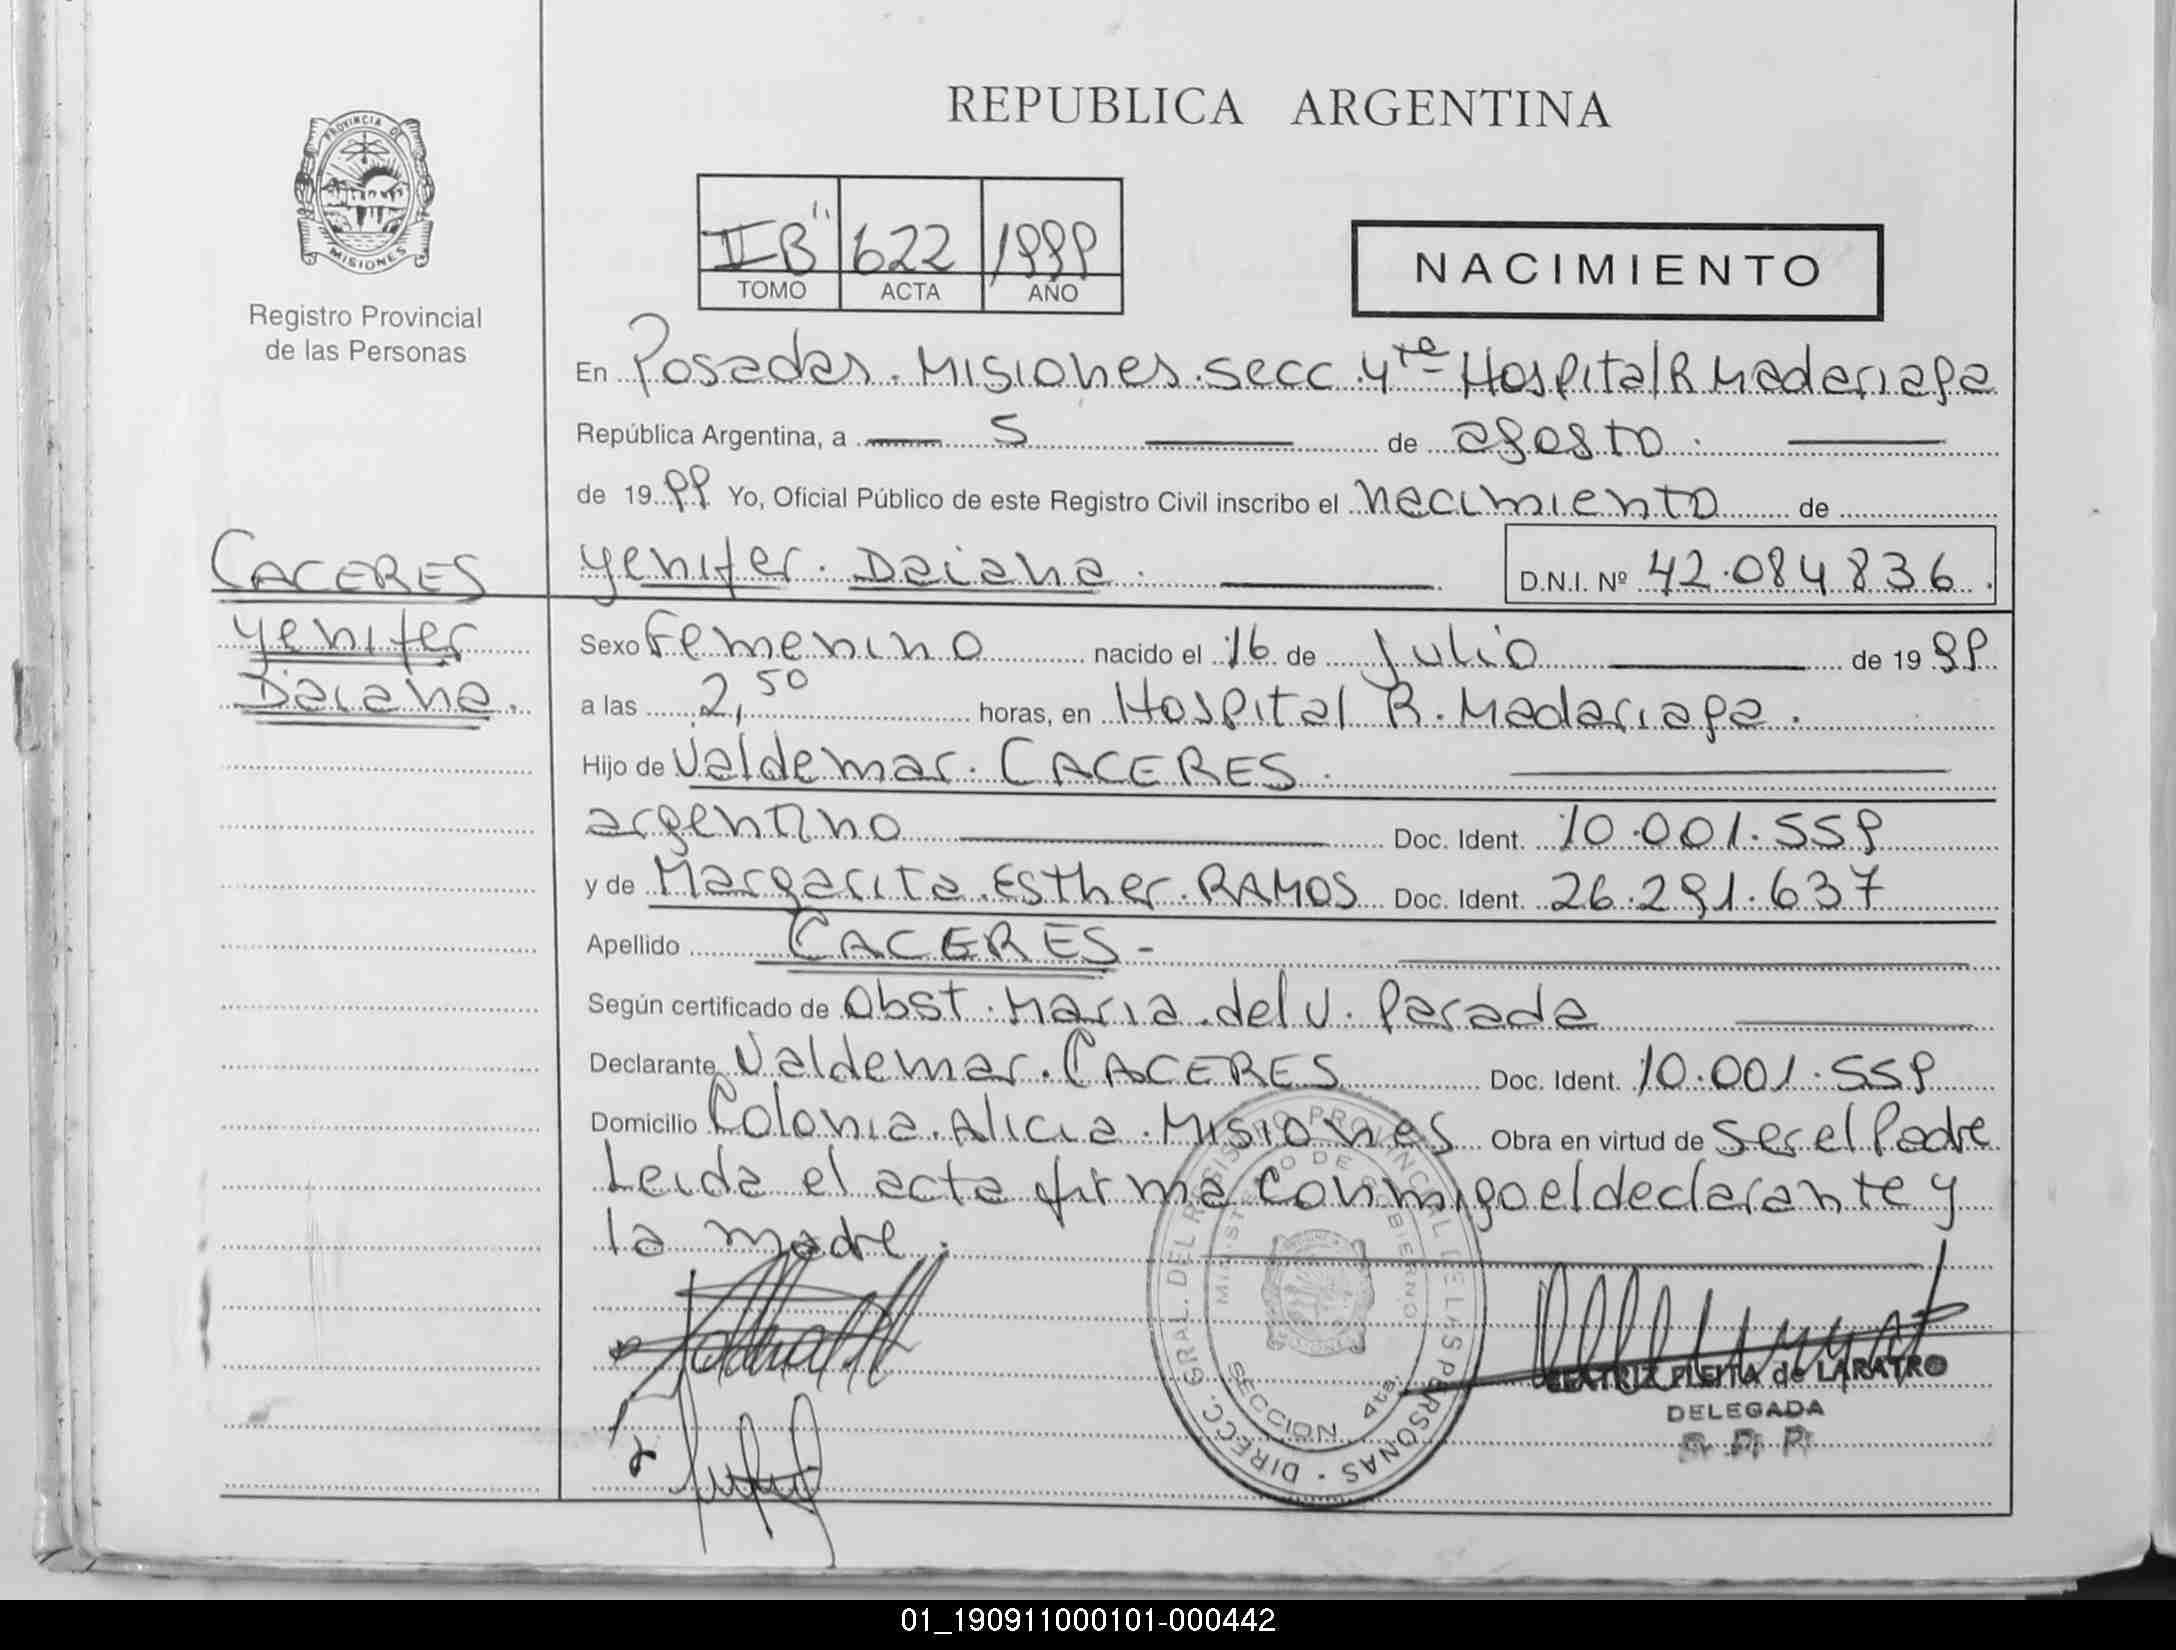 REPUBLICA ARGENTINA
PROVINCIA DE
MISIONES
Registro Provincial
de las Personas
II B" 622 1999
TOMO ACTA AÑO
NACIMIENTO
En Posadas. Misiones. secc. 4ta Hospital R Madariaga
República Argentina, a 5 de agosto.
de 1999 Yo, Oficial Público de este Registro Civil inscribo el nacimiento de
CACERES
Yenifer
Daiana.
Yenifer. Daiana. D.N.I. Nº 42.084.836.
Sexo Femenino nacido el 16 de Julio de 1999
a las 2,50 horas, en Hospital R. Madariaga.
Hijo de Valdemar. CACERES.
argentino Doc. Ident. 10.001.559
y de Margarita. Esther. RAMOS Doc. Ident. 26.291.637
Apellido CACERES-
Según certificado de Obst. Maria. del V. Parada
Declarante Valdemar. CACERES Doc. Ident. 10.001.559
Domicilio Colonia. Alicia. Misiones Obra en virtud de ser el Padre
Leida el acta firma conmigo el declarante y
la madre.
DIRECC. GRAL. DEL REGISTRO PROVINCIAL DE LAS PERSONAS
MINISTERIO DE GOBIERNO
SECCION 4ta.
BEATRIZ PLEITA de LARATRO
DELEGADA
01_190911000101-000442